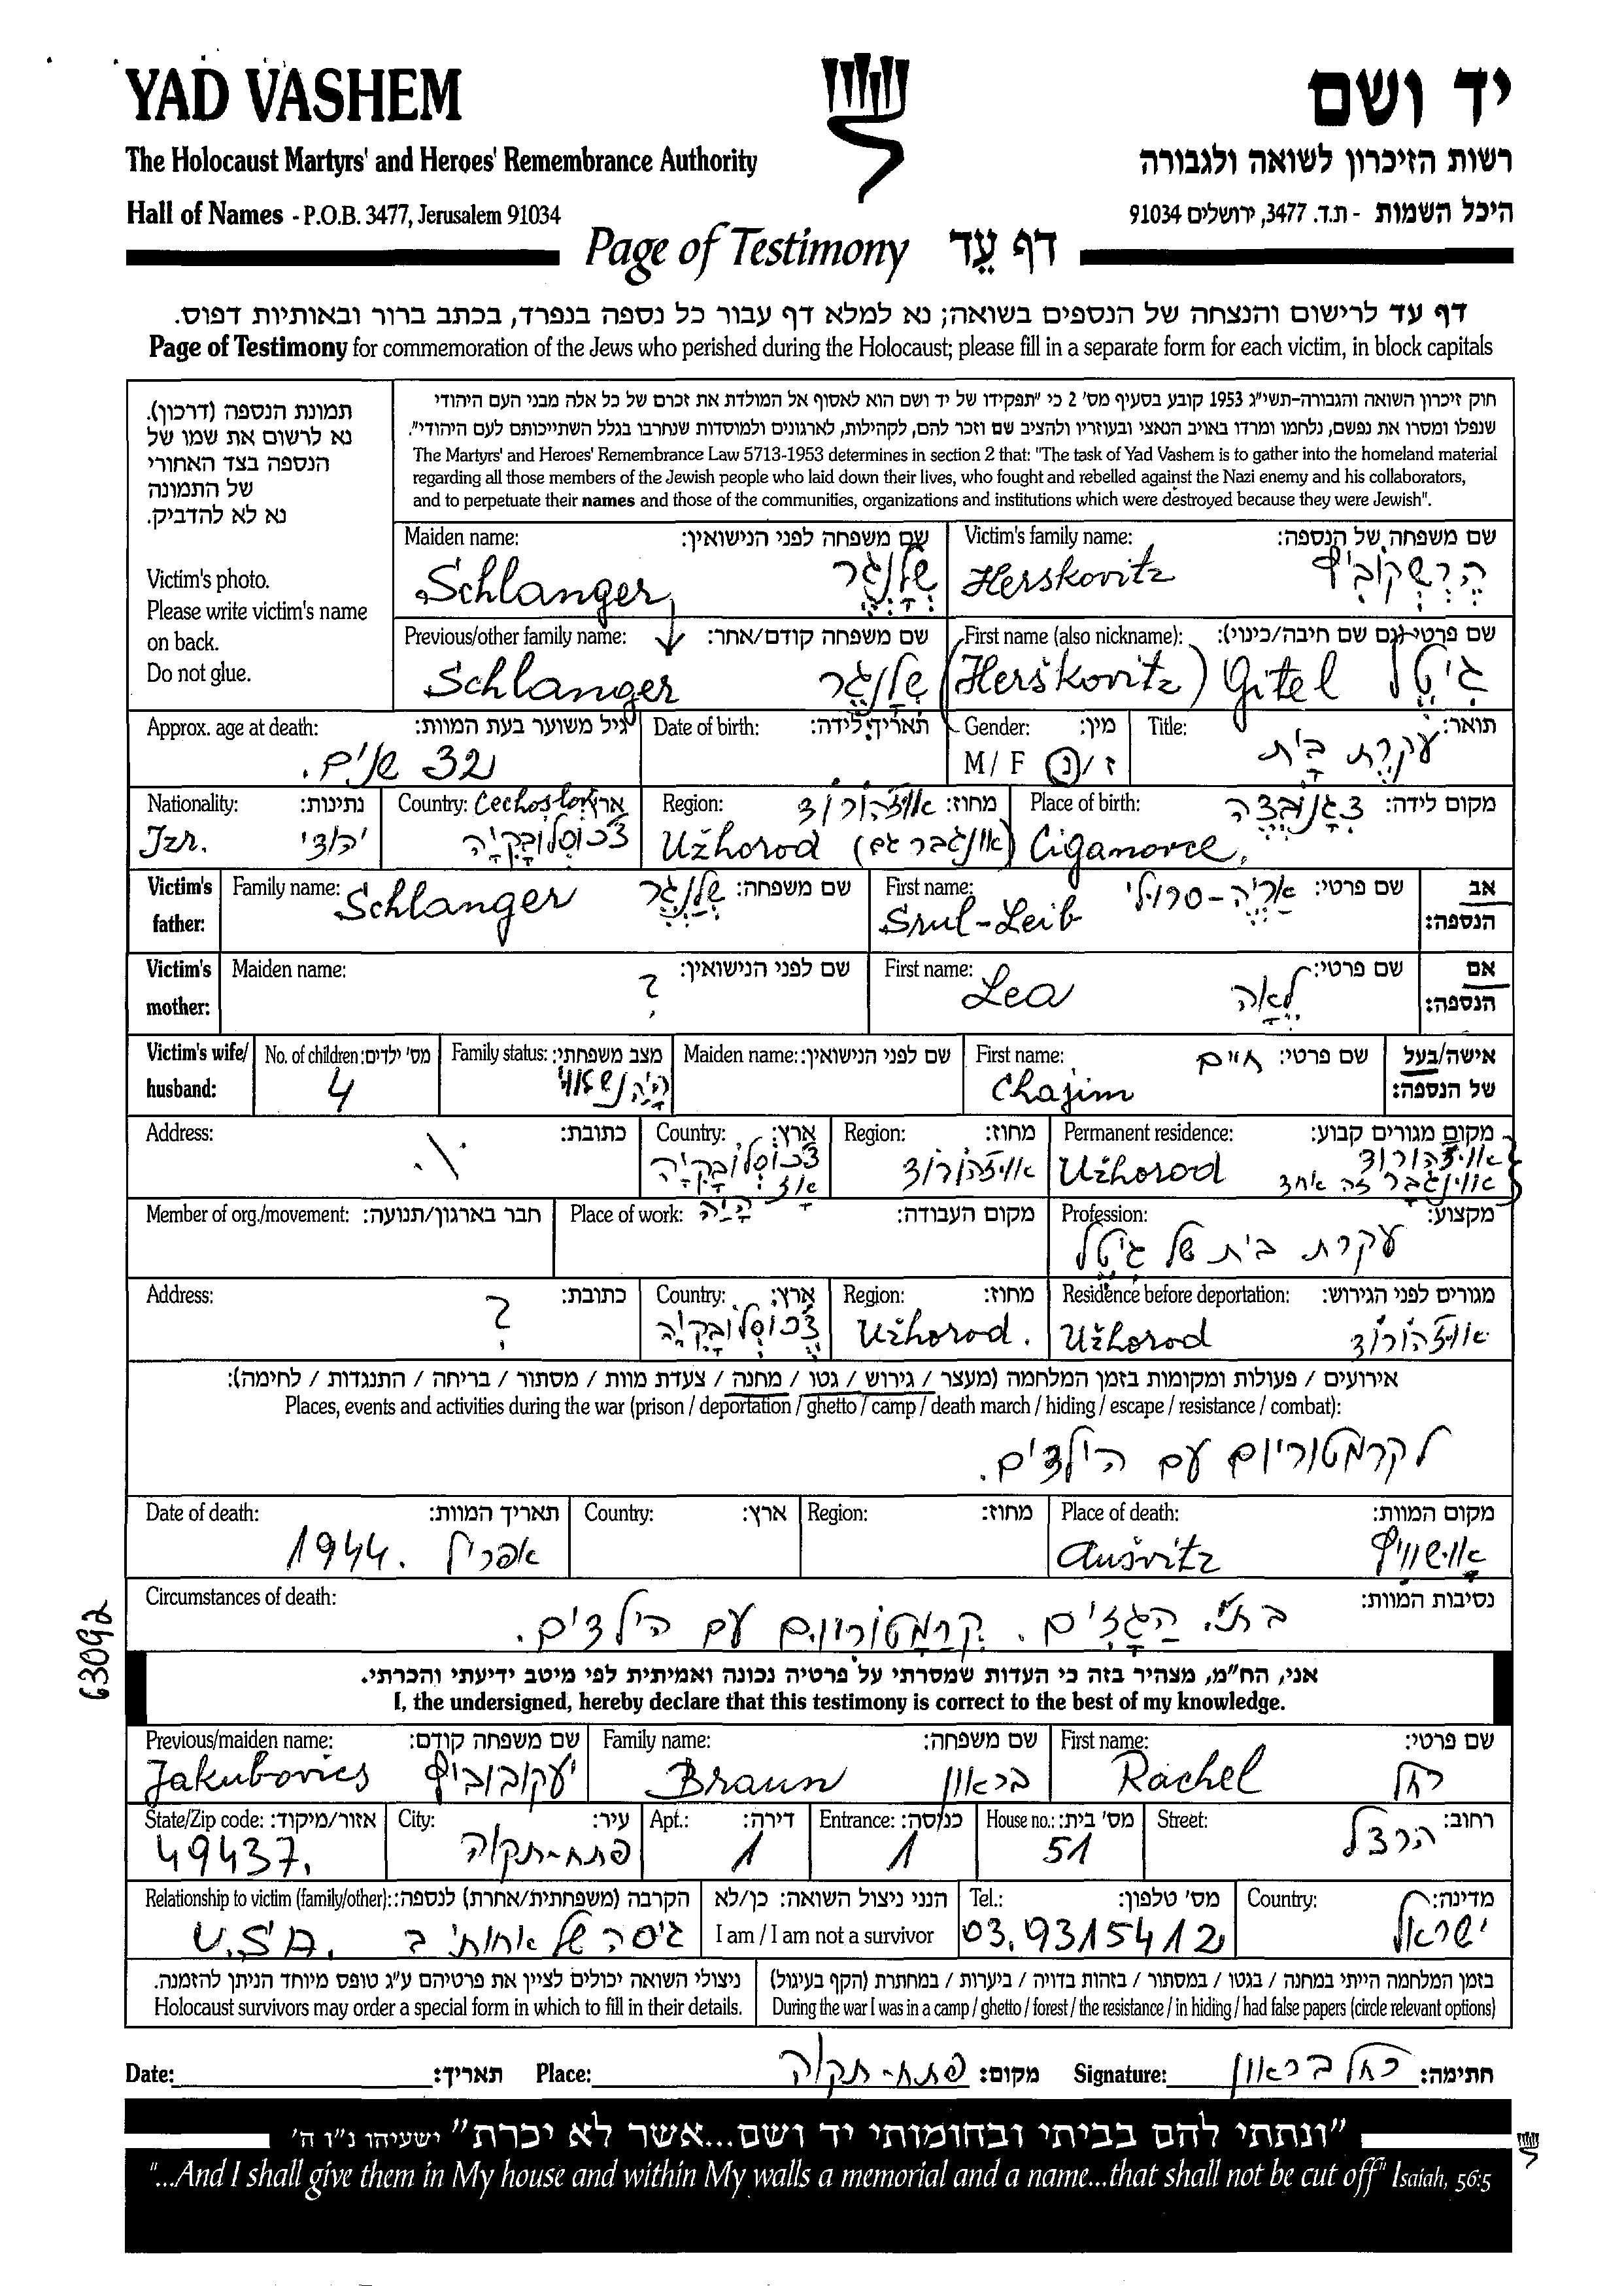 YAD VASHEM
יד ושם
The Holocaust Martyrs' and Heroes' Remembrance Authority
רשות הזיכרון לשואה ולגבורה
Hall of Names - P.O.B. 3477, Jerusalem 91034
היכל השמות - ת.ד. 3477, ירושלים 91034
Page of Testimony דף עֵד
דף עד לרישום והנצחה של הנספים בשואה; נא למלא דף עבור כל נספה בנפרד, בכתב ברור ובאותיות דפוס.
Page of Testimony for commemoration of the Jews who perished during the Holocaust; please fill in a separate form for each victim, in block capitals
תמונת הנספה (דרכון).
נא לרשום את שמו של
הנספה בצד האחורי
של התמונה
נא לא להדביק.
Victim's photo.
Please write victim's name
on back.
Do not glue.
חוק זיכרון השואה והגבורה-תשי"ג 1953 קובע בסעיף מס' 2 כי "תפקידו של יד ושם הוא לאסוף אל המולדת את זכרם של כל אלה מבני העם היהודי
שנפלו ומסרו את נפשם, נלחמו ומרדו באויב הנאצי ובעוזריו ולהציב שם וזכר להם, לקהילות, לארגונים ולמוסדות שנחרבו בגלל השתייכותם לעם היהודי".
The Martyrs' and Heroes' Remembrance Law 5713-1953 determines in section 2 that: "The task of Yad Vashem is to gather into the homeland material
regarding all those members of the Jewish people who laid down their lives, who fought and rebelled against the Nazi enemy and his collaborators,
and to perpetuate their names and those of the communities, organizations and institutions which were destroyed because they were Jewish".
Maiden name: שם משפחה לפני הנישואין:
Schlanger שלנגר
Victim's family name: שם משפחה של הנספה:
Herskovitz הרשקוביץ
Previous/other family name: שם משפחה קודם/אחר:
Schlanger שלנגר
First name (also nickname): שם פרטי (גם שם חיבה/כינוי):
(Herškovitz) Gitel גיטל
Approx. age at death: גיל משוער בעת המוות:
32 שנים.
Date of birth: תאריך לידה:
Gender: מין:
M / F ז / נ
Title: תואר:
עקרת בית
Nationality: נתינות:
Izr. יהודי
Country: ארץ:
צ'כוסלובקיה
Region: מחוז: אוז'הורוד
Užhorod (אונגבר גם)
Place of birth: מקום לידה:
Ciganovce,
Victim's father: אב הנספה:
Family name: שם משפחה:
Schlanger שלנגר
First name: שם פרטי:
Srul-Leib אריה-סרולי
Victim's mother: אם הנספה:
Maiden name: שם לפני הנישואין:
?
First name: שם פרטי:
Lea לאה
Victim's wife/husband: אישה/בעל של הנספה:
No. of children: מס' ילדים:
4
Family status: מצב משפחתי:
Maiden name: שם לפני הנישואין:
First name: שם פרטי:
Chajim חיים
Address: כתובת:
Country: ארץ:
צ'כוסלובקיה
אז היה
Region: מחוז:
אוז'הורוד
Permanent residence: מקום מגורים קבוע:
Užhorod אוז'הורוד
אונגבר זה אחד
Member of org./movement: חבר בארגון/תנועה:
Place of work: מקום העבודה:
Profession: מקצוע:
עקרת בית של גיטל
Address: כתובת:
?
Country: ארץ:
צ'כוסלובקיה
Region: מחוז:
Užhorod.
Residence before deportation: מגורים לפני הגירוש:
Užhorod אוז'הורוד
אירועים / פעולות ומקומות בזמן המלחמה (מעצר / גירוש / גטו / מחנה / צעדת מוות / מסתור / בריחה / התנגדות / לחימה):
Places, events and activities during the war (prison / deportation / ghetto / camp / death march / hiding / escape / resistance / combat):
לקרמטוריום עם הילדים.
Date of death: תאריך המוות:
1944. אפריל
Country: ארץ:
Region: מחוז:
Place of death: מקום המוות:
Aušvitz אושוויץ
Circumstances of death: נסיבות המוות:
בתי. הגזים. קרמטוריום עם הילדים.
63092
אני, הח"מ, מצהיר בזה כי העדות שמסרתי על פרטיה נכונה ואמיתית לפי מיטב ידיעתי והכרתי.
I, the undersigned, hereby declare that this testimony is correct to the best of my knowledge.
Previous/maiden name: שם משפחה קודם:
Jakubovics יעקובוביץ
Family name: שם משפחה:
Braun בראון
First name: שם פרטי:
Rachel רחל
State/Zip code: אזור/מיקוד:
49437.
City: עיר:
פתח-תקוה
Apt.: דירה:
1
Entrance: כניסה:
1
House no.: מס' בית:
51
Street: רחוב:
הרצל
Relationship to victim (family/other): הקרבה (משפחתית/אחרת) לנספה:
גיסה של אחותי ב U.S.A.
הנני ניצול השואה: כן/לא
I am / I am not a survivor
Tel.: מס' טלפון:
03.9315412
Country: מדינה:
ישראל
ניצולי השואה יכולים לציין את פרטיהם ע"ג טופס מיוחד הניתן להזמנה.
Holocaust survivors may order a special form in which to fill in their details.
בזמן המלחמה הייתי במחנה / בגטו / במסתור / בזהות בדויה / ביערות / במחתרת (הקף בעיגול)
During the war I was in a camp / ghetto / forest / the resistance / in hiding / had false papers (circle relevant options)
Date: תאריך: Place: פתח-תקוה מקום: Signature: רחל בראון חתימה:
"ונתתי להם בביתי ובחומותי יד ושם...אשר לא יכרת" ישעיהו נ"ו ה'
"...And I shall give them in My house and within My walls a memorial and a name...that shall not be cut off" Isaiah, 56:5